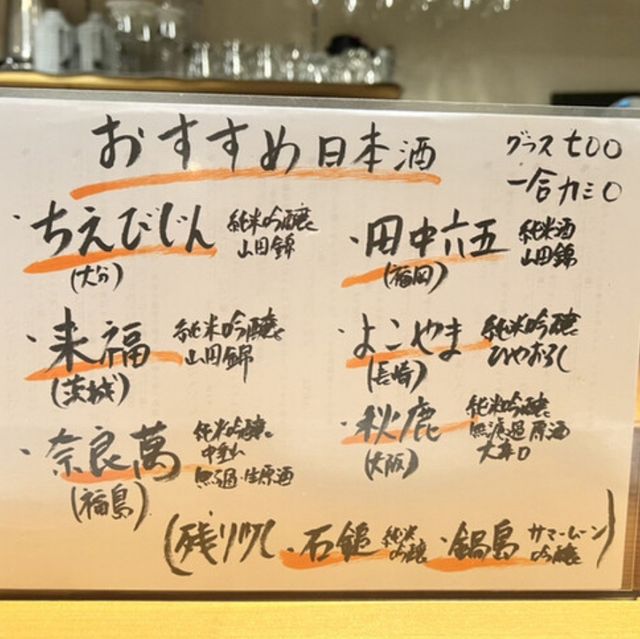 おすすめ日本酒
グラス 七〇〇
一合
・ちえびじん 純米吟醸
山田錦
(大分)
・田中六五 純米酒
山田錦
(福岡)
・来福 純米吟醸
山田錦
(茨城)
・よこやま 純米吟醸
ひやおろし
(長崎)
・奈良萬 純米吟醸
中垂れ
無濾過・生原酒
(福島)
・秋鹿 純米吟醸
無濾過原酒
(大阪)
(残り少し ・石鎚 純米
吟醸
・鍋島 サマームーン
吟醸)